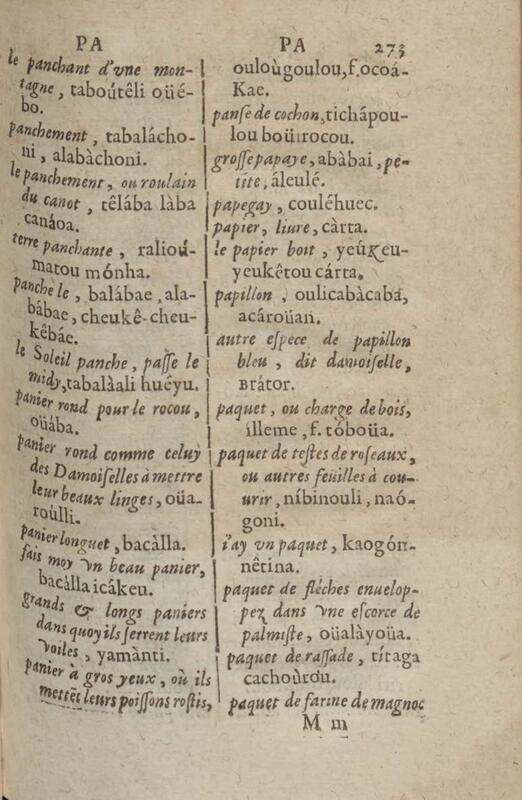 PA
PA 273
le panchant d'vne mon-
tagne, taboútêli oüé-
bo.
panchement, tabalácho-
ni, alabàchoni.
le panchement, ou roulain
du canot, têlába làba
canáoa.
terre panchante,ralioú-
matou mónha.
panche le, balábae, ala-
bábae, cheukê-cheu-
kêbáe.
le Soleil panche, passe le
midy, tabalàali huéyu.
panier rond pour le rocou,
oüába.
panier rond comme celuy
des Damoiselles à mettre
leur beaux linges, oüa-
roùlli.
panier longuet, bacàlla.
fais moy vn beau panier,
bacàlla icákeu.
grands & longs paniers
dans quoy ils serrent leurs
voiles, yamànti.
panier à gros yeux, où ils
mettẽt leurs poissons rostis,
ouloùgoulou, f. ocoá-
Kae.
panse de cochon, tichápou-
lou boüirocou.
grosse papaye, abàbai, pe-
tite, áleulé.
papegay, couléhuec.
papier, liure, càrta.
le papier boit, yeúKeu-
yeukêtou cárta.
papillon, oulicabàcabá,
acároüan.
autre espece de papillon
bleu, dit damoiselle,
Brátor.
paquet, ou charge de bois,
illeme, f. tóboüa.
paquet de testes de roseaux,
ou autres feüilles à cou-
urir, níbinouli, naó-
goni.
i'ay vn paquet, kaogón-
nêtina.
paquet de fléches enuelop-
pez dans vne escorce de
palmiste, oüalàyoüa.
paquet de rassade, títaga
cachoùrou.
paquet de farine de magnoc
M m